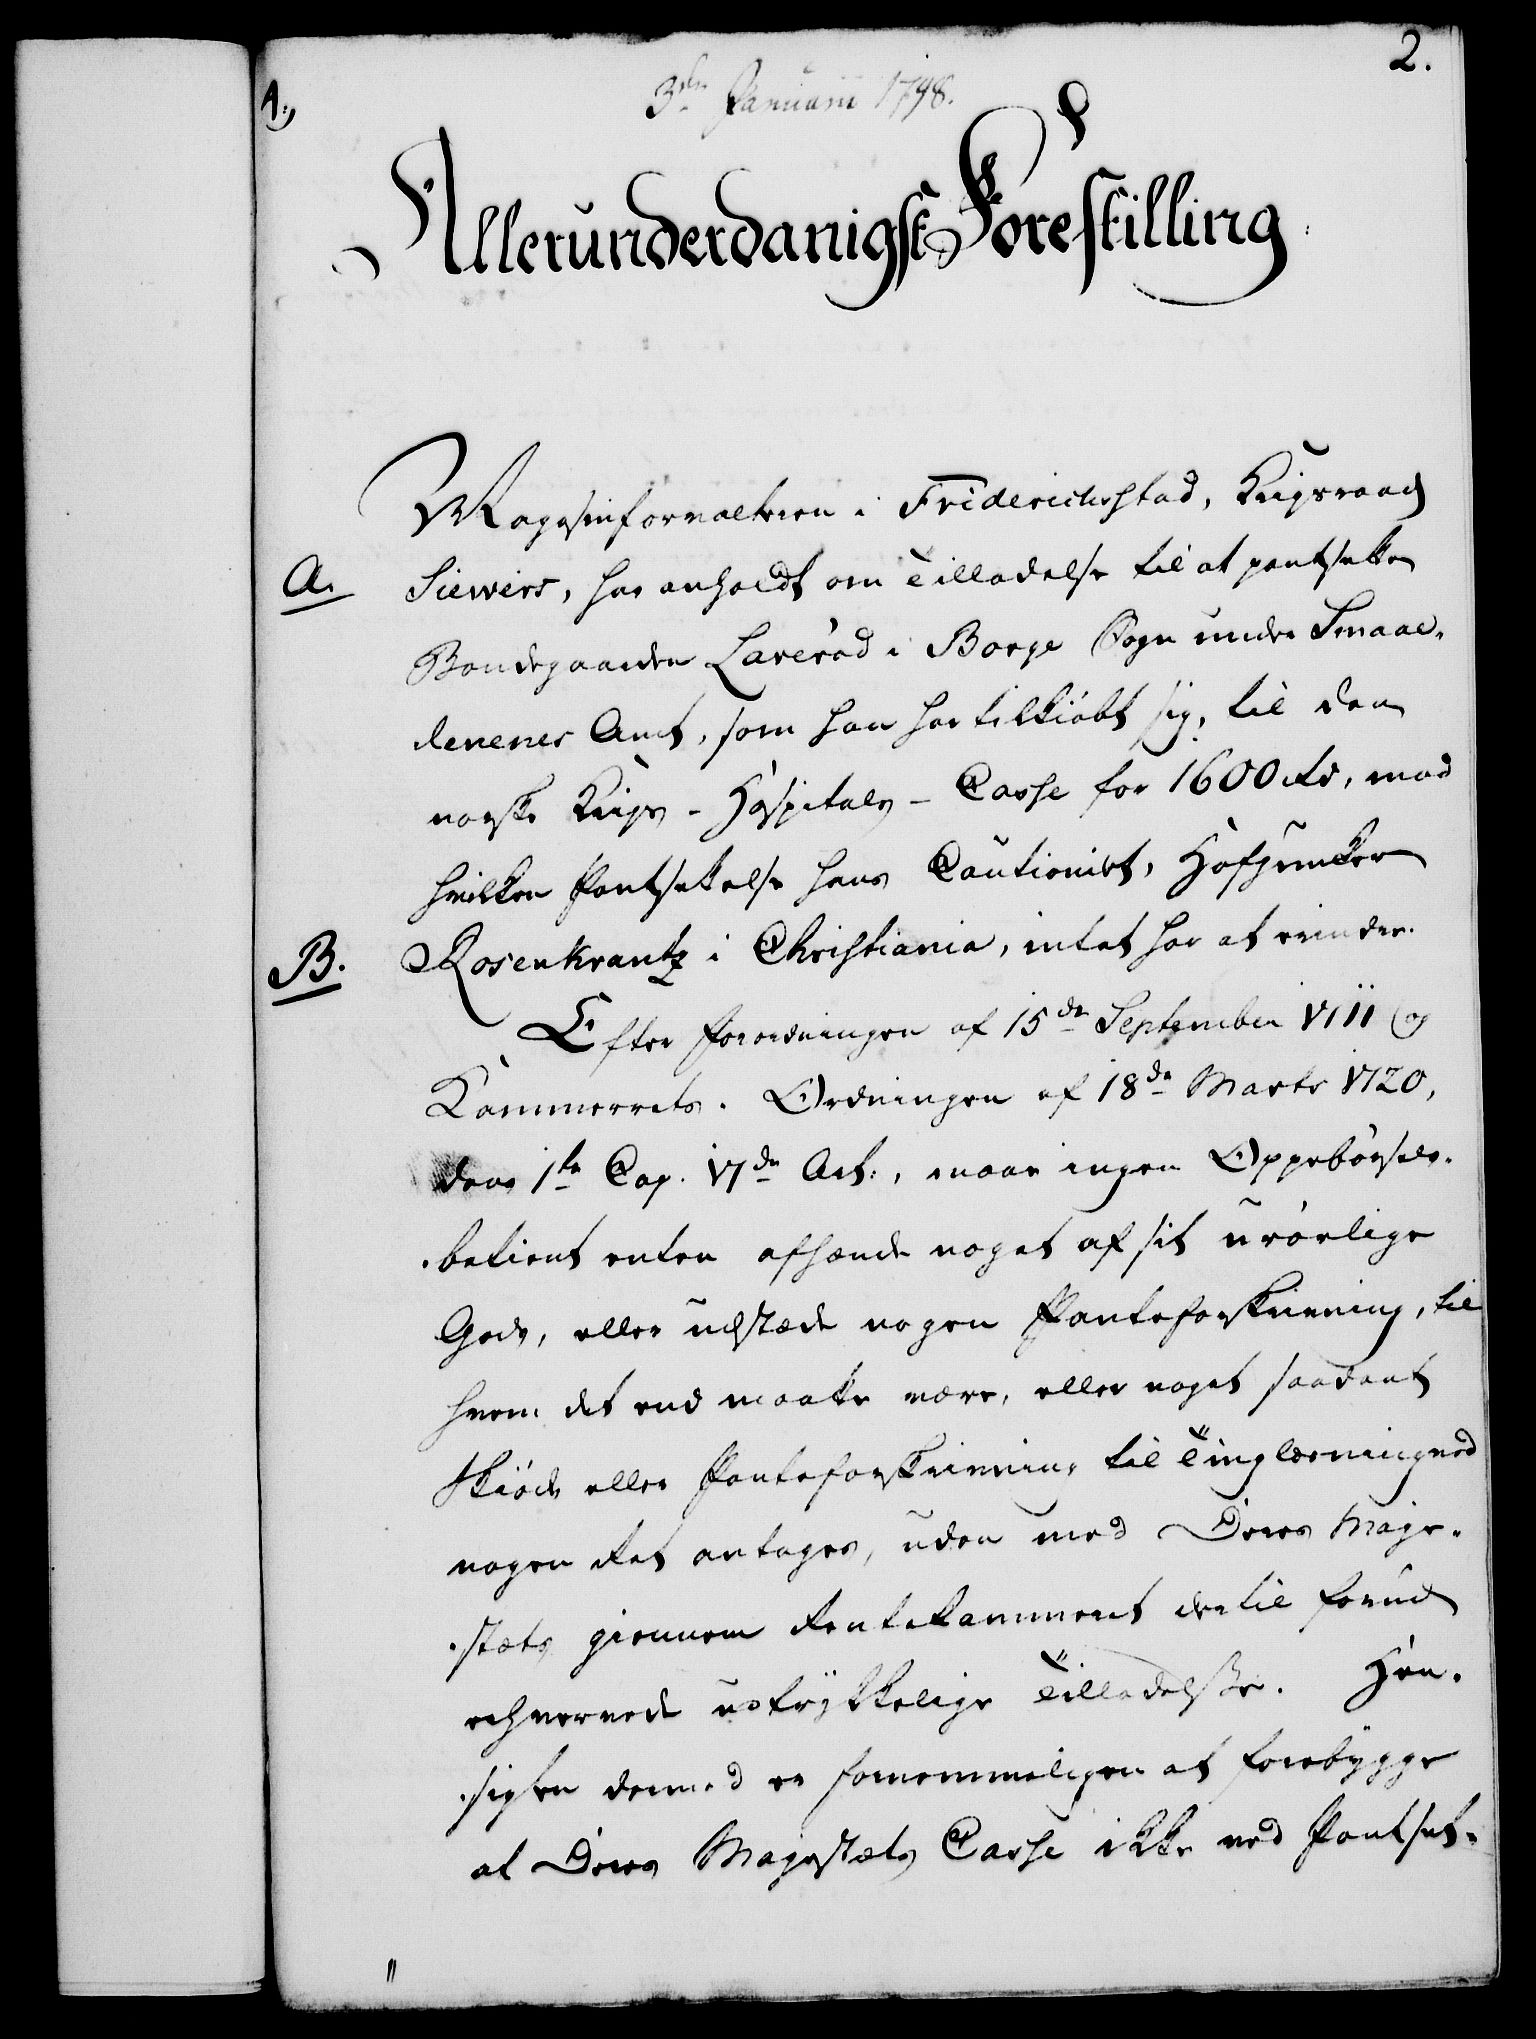 2.
1.)
3die Januarii 1798.
Allerunderdanigst Forestilling
Magasinforvalteren i Friderichstad, Krigsraad
A. Siewers, har anholdt om Tilladelse til at pantsætte
Bondegaarden Lareröd i Borge Sogn under Smaae-
lenenes Amt, som han har tilkiöbt sig, til den
norske Krigs-Hospitals-Casse for 1600 rd, mod
hvilken Pantsættelse hans Cautionist, Hofjunker
B. Rosenkrantz i Christiania, intet har at erindre.
Efter Forordningen af 15de September 1711 og
Kammerrets-Ordningen af 18de Marts 1720,
dens 1te Cap. 17de Art:, maae ingen Oppebörsels-
betient enten afhænde noget af sit urörlige
Gods, eller udstæde nogen Panteforskrivning, til
hvem det end maatte være, eller noget saadant
Skiöde eller Panteforskrivning til Tinglæsning ved
nogen Ret antages, uden med Deres Maje-
stæts giennem Rentekammeret dertil forud
erhvervede udtrykkelige Tilladelse. Hen-
sigten dermed er fornemmeligen at forebygge
at Deres Majestæts Casse ikke ved Pantsæt-
"